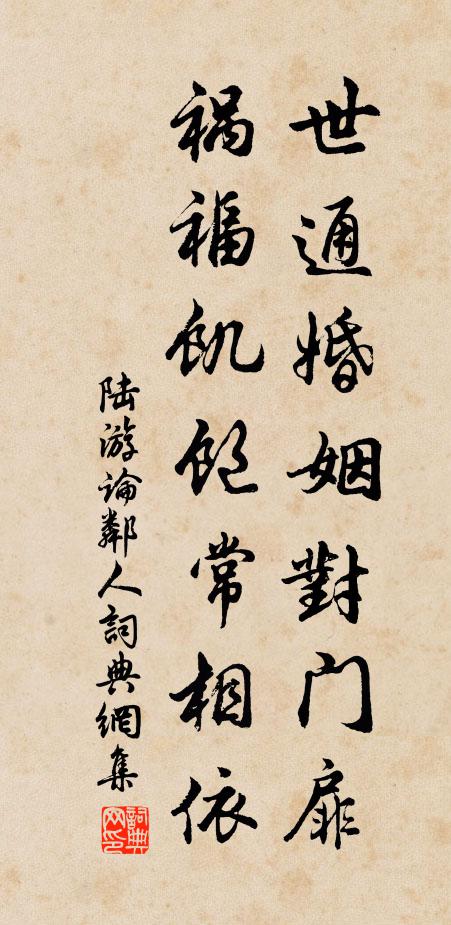 世通婚姻對门扉
祸福飢飽常相依
陆游論鄰人詞典網集
詞典网印